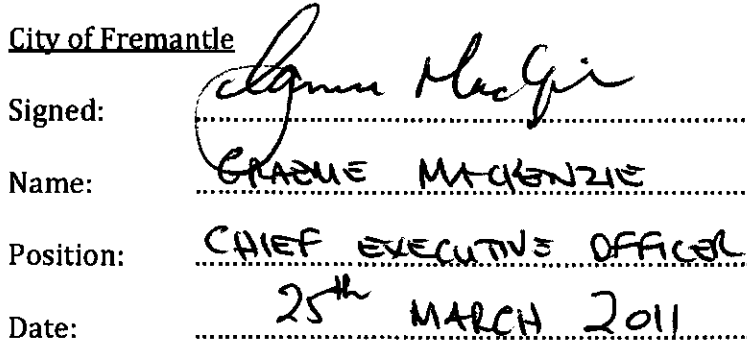 City of Fremantle
Signed:
Name: GRAEME MACKENZIE
Position: CHIEF EXECUTIVE OFFICER
Date: 25th MARCH 2011